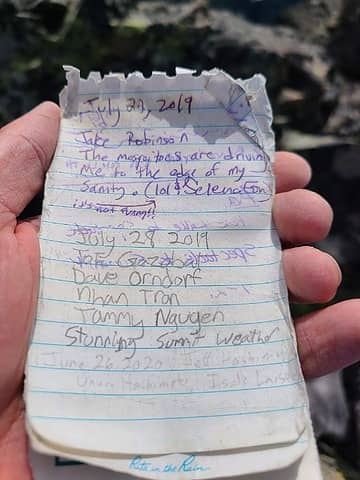 July 27, 2019
Jake Robinson
The mosquitoes are driving
me to the edge of my
Sanity. (lol
it's not funny!!
July 28 2019
Joe
Dave Orndorf
Nhan Tran
Tammy Nguyen
Stunning Summit Weather
June 26 2020 Jeff Hashimoto
Hashimoto
Rite in the Rain